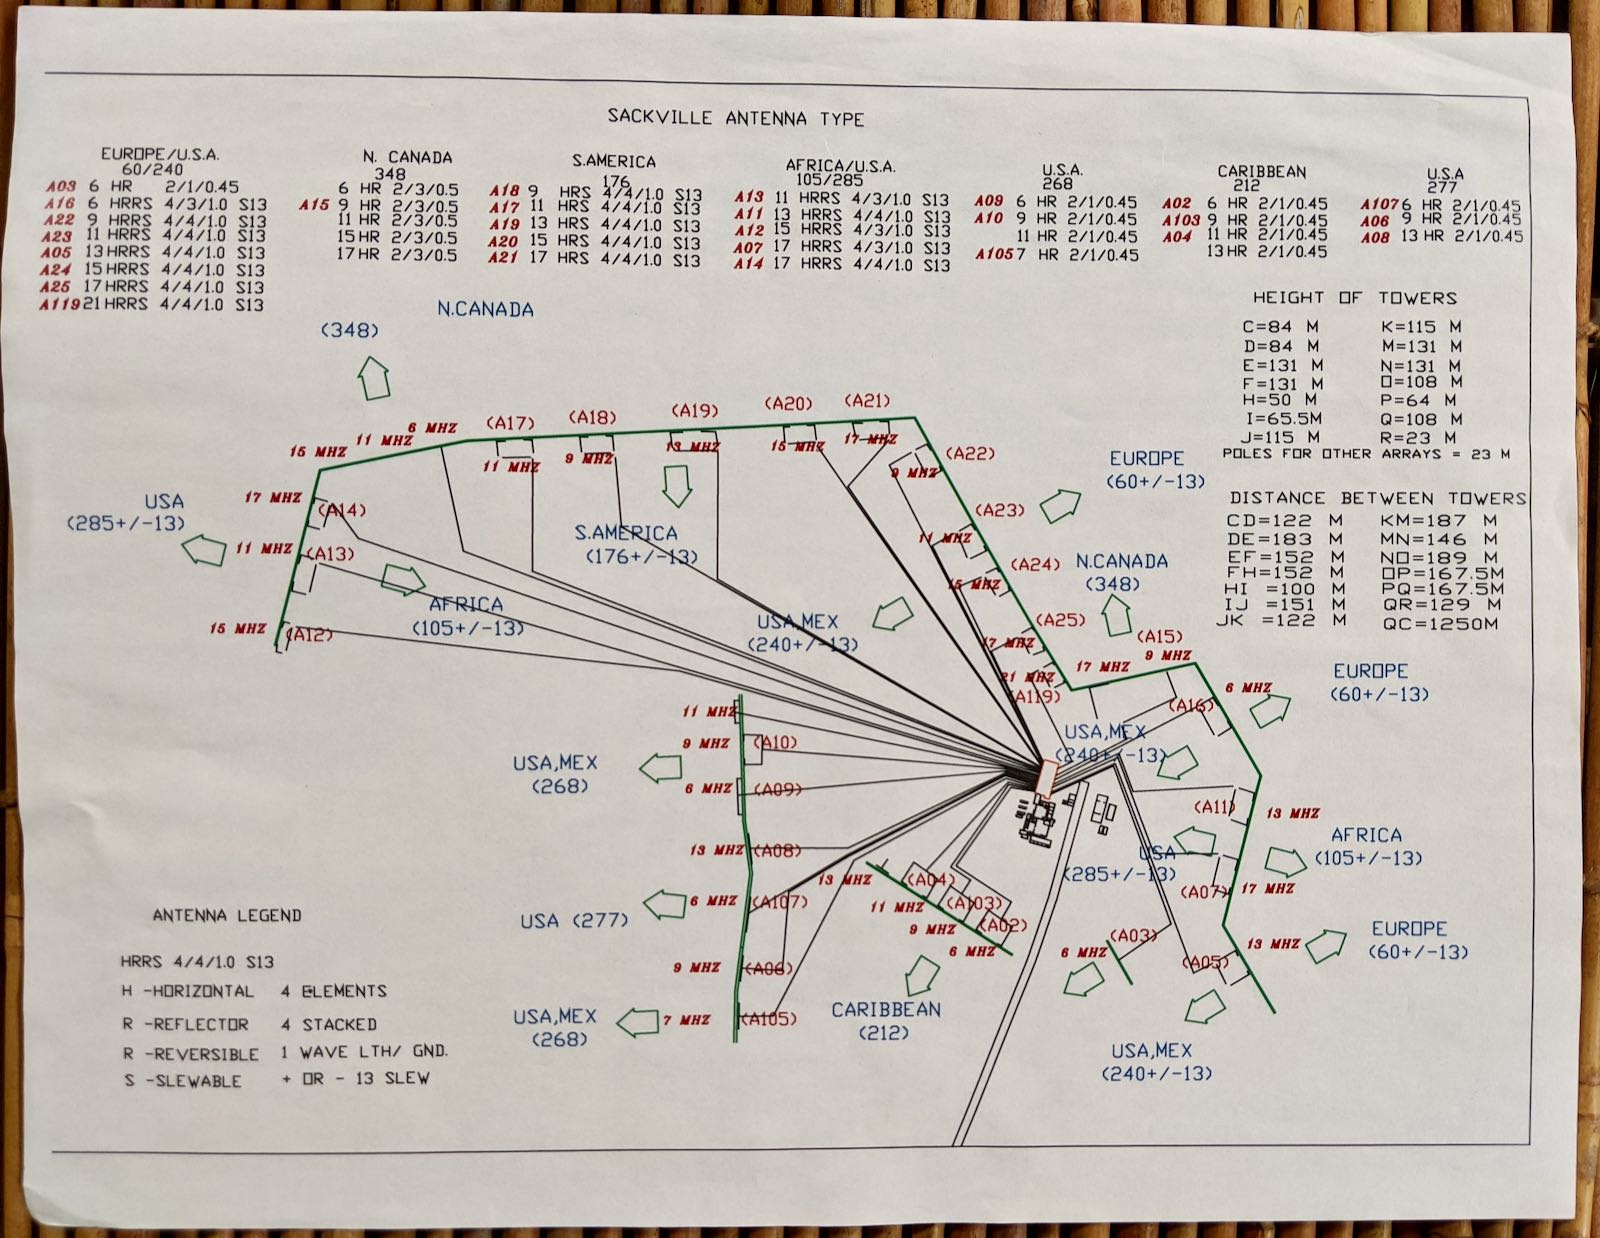 SACKVILLE ANTENNA TYPE
EUROPE/U.S.A.
60/240
A03 6 HR 2/1/0.45
A16 6 HRRS 4/3/1.0 S13
A22 9 HRRS 4/4/1.0 S13
A23 11 HRRS 4/4/1.0 S13
A05 13 HRRS 4/4/1.0 S13
A24 15 HRRS 4/4/1.0 S13
A25 17 HRRS 4/4/1.0 S13
A119 21 HRRS 4/4/1.0 S13
N. CANADA
348
6 HR 2/3/0.5
A15 9 HR 2/3/0.5
11 HR 2/3/0.5
15 HR 2/3/0.5
17 HR 2/3/0.5
S.AMERICA
176
A18 9 HRS 4/4/1.0 S13
A17 11 HRS 4/4/1.0 S13
A19 13 HRS 4/4/1.0 S13
A20 15 HRS 4/4/1.0 S13
A21 17 HRS 4/4/1.0 S13
AFRICA/U.S.A.
105/285
A13 11 HRRS 4/3/1.0 S13
A11 13 HRRS 4/4/1.0 S13
A12 15 HRRS 4/4/1.0 S13
A07 17 HRRS 4/3/1.0 S13
A14 17 HRRS 4/4/1.0 S13
U.S.A.
268
A09 6 HR 2/1/0.45
A10 9 HR 2/1/0.45
11 HR 2/1/0.45
A105 7 HR 2/1/0.45
CARIBBEAN
212
A02 6 HR 2/1/0.45
A103 9 HR 2/1/0.45
A04 11 HR 2/1/0.45
13 HR 2/1/0.45
U.S.A
277
A107 6 HR 2/1/0.45
A06 9 HR 2/1/0.45
A08 13 HR 2/1/0.45
HEIGHT OF TOWERS
C=84 M K=115 M
D=84 M M=131 M
E=131 M N=131 M
F=131 M O=108 M
H=50 M P=64 M
I=65.5M Q=108 M
J=115 M R=23 M
POLES FOR OTHER ARRAYS = 23 M
DISTANCE BETWEEN TOWERS
CD=122 M KM=187 M
DE=183 M MN=146 M
EF=152 M NO=189 M
FH=152 M OP=167.5M
HI =100 M PQ=167.5M
IJ =151 M QR=129 M
JK =122 M QC=1250M
N.CANADA
(348)
6 MHZ
11 MHZ
15 MHZ
(A17)
11 MHZ
(A18)
9 MHZ
(A19)
13 MHZ
(A20)
15 MHZ
(A21)
17 MHZ
(A22)
9 MHZ
EUROPE
(60+/-13)
USA
(285+/-13)
17 MHZ
(A14)
11 MHZ
(A13)
15 MHZ
(A12)
AFRICA
(105+/-13)
S.AMERICA
(176+/-13)
(A23)
11 MHZ
(A24)
15 MHZ
N.CANADA
(348)
USA,MEX
(240+/-13)
(A25)
17 MHZ
21 MHZ
(A119)
17 MHZ
(A15)
9 MHZ
(A16)
6 MHZ
EUROPE
(60+/-13)
USA,MEX
(240+/-13)
11 MHZ
9 MHZ
(A10)
USA,MEX
(268)
6 MHZ
(A09)
13 MHZ
(A08)
6 MHZ
(A107)
USA (277)
9 MHZ
(A06)
7 MHZ
(A105)
USA,MEX
(268)
(A11)
13 MHZ
USA
(285+/-13)
AFRICA
(105+/-13)
(A07)
17 MHZ
13 MHZ
(A04)
11 MHZ
(A103)
9 MHZ
(A02)
6 MHZ
CARIBBEAN
(212)
6 MHZ
(A03)
(A05)
13 MHZ
EUROPE
(60+/-13)
USA,MEX
(240+/-13)
ANTENNA LEGEND
HRRS 4/4/1.0 S13
H -HORIZONTAL 4 ELEMENTS
R -REFLECTOR 4 STACKED
R -REVERSIBLE 1 WAVE LTH/ GND.
S -SLEWABLE + OR - 13 SLEW